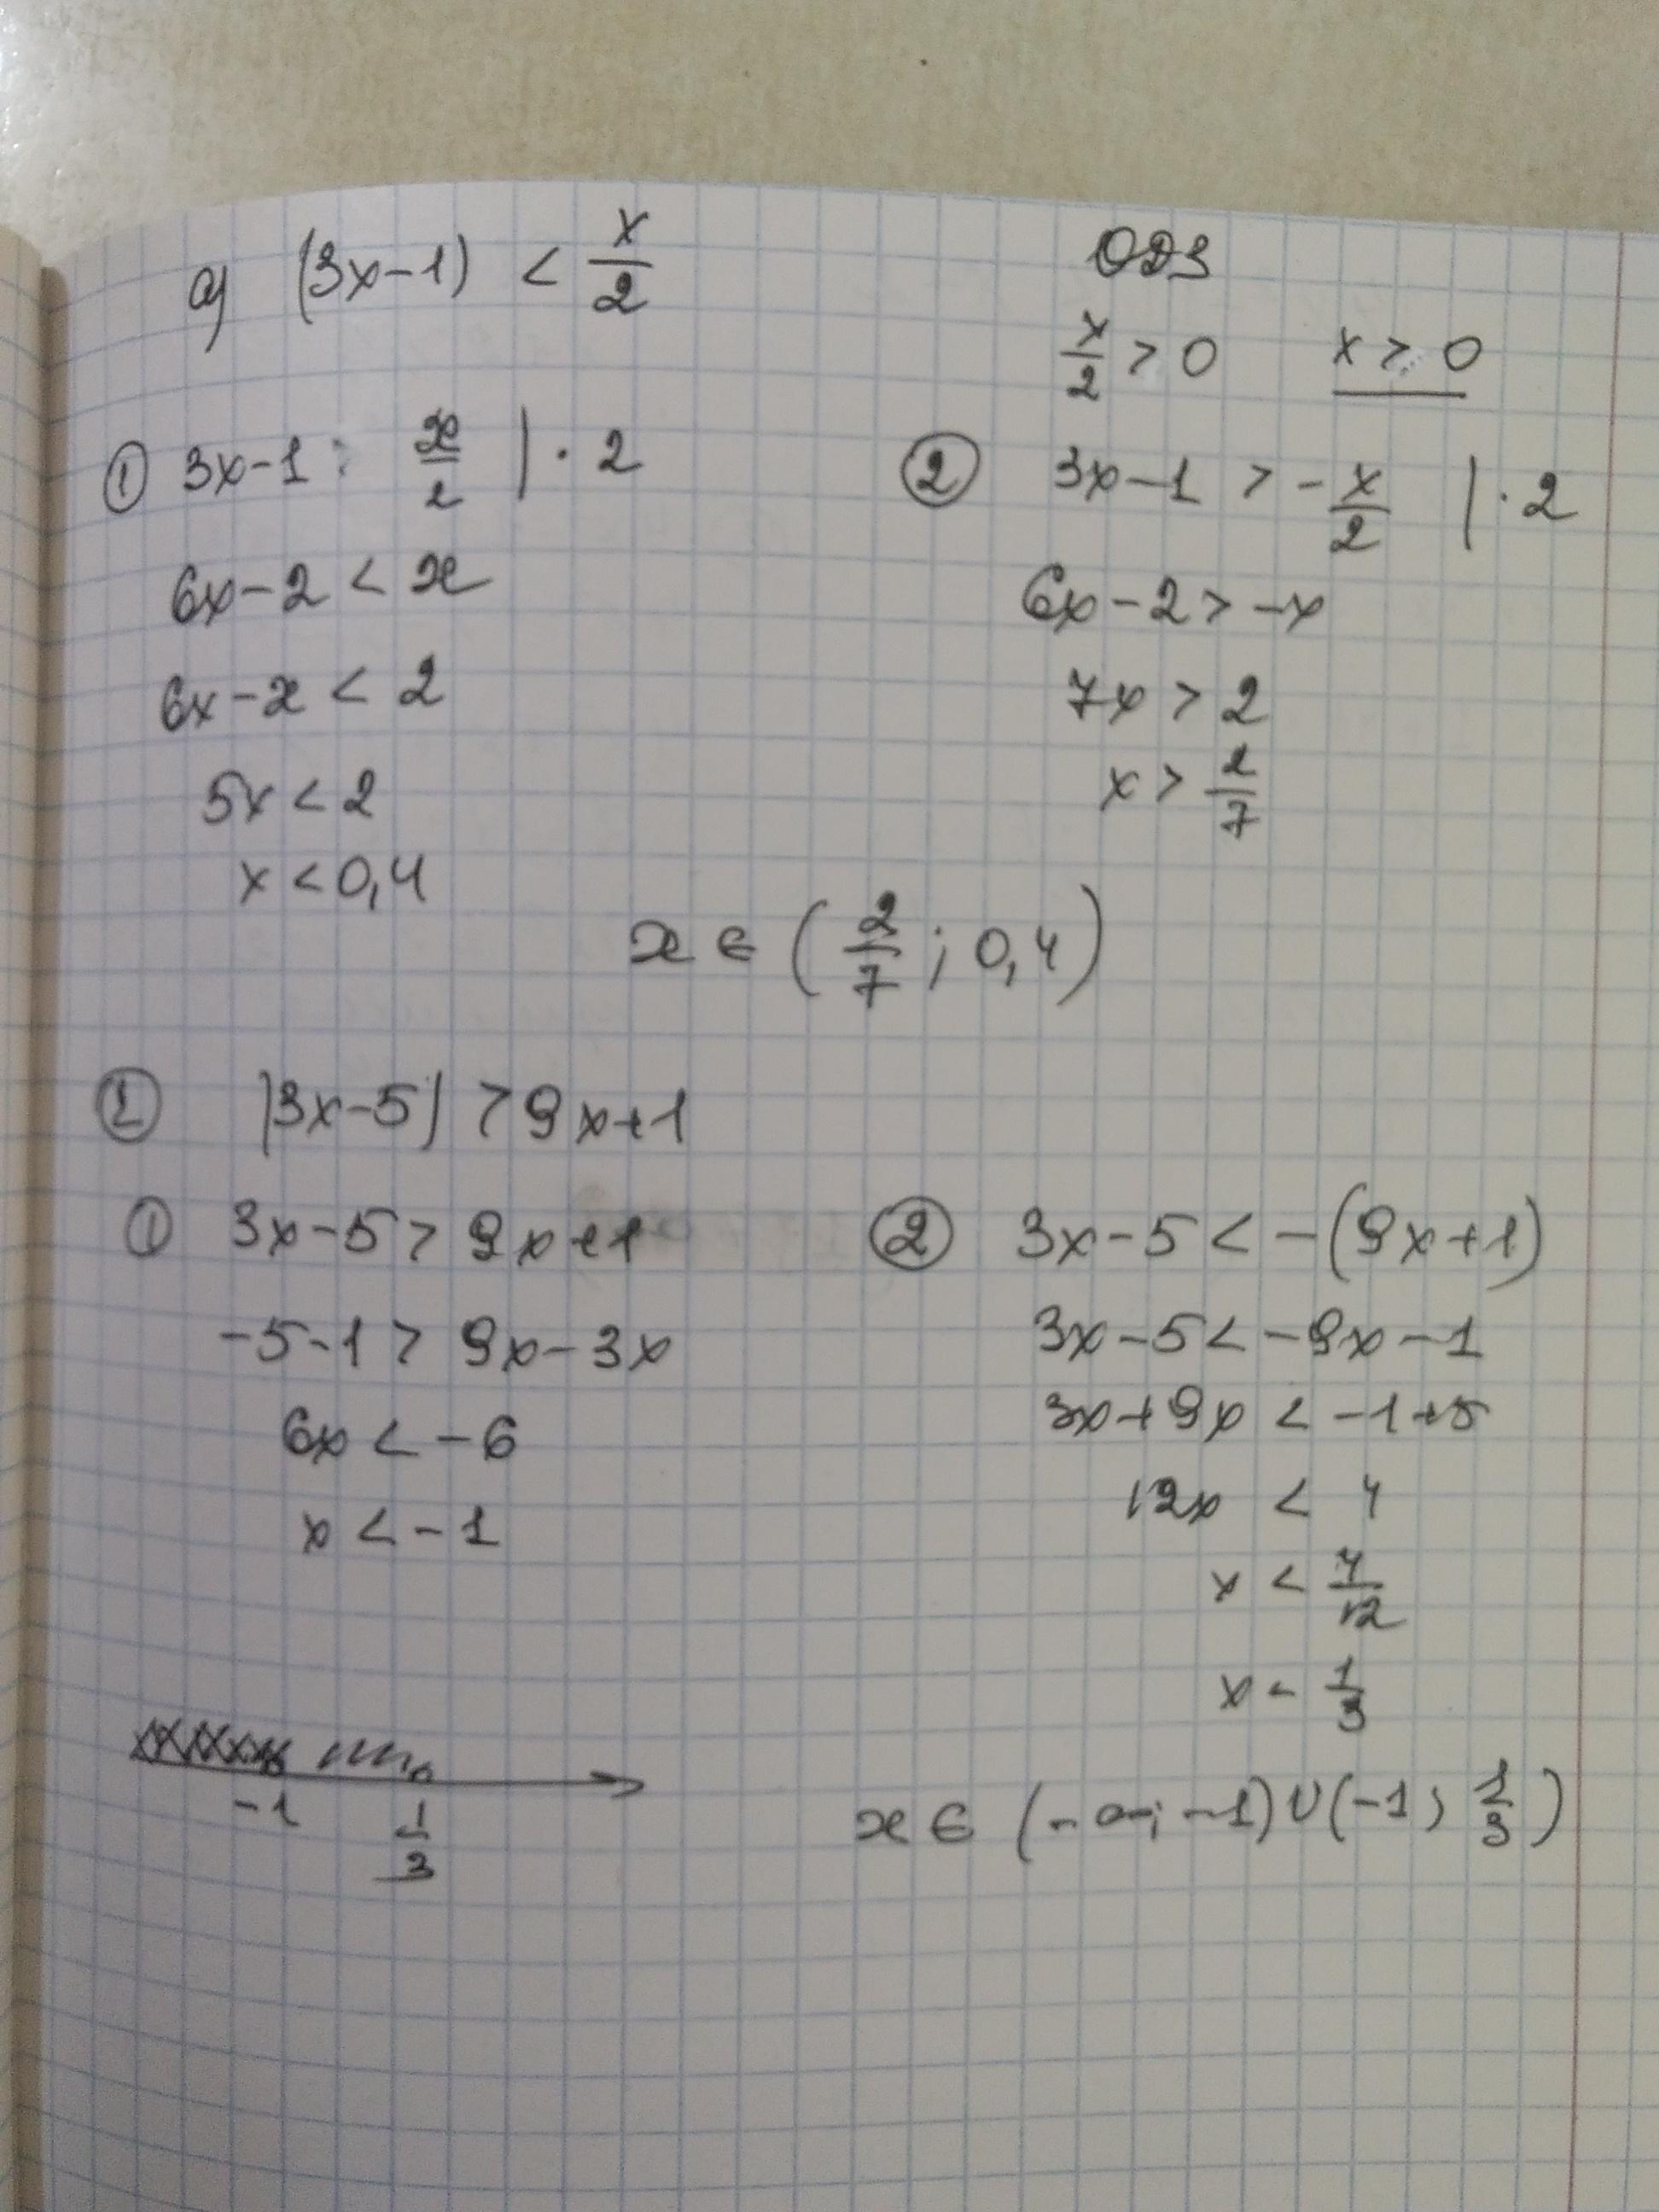 а) (3x-1) < x/2
ОДЗ
x/2 > 0 x > 0
① 3x-1 x/2 | · 2
6x-2 < x
6x-x < 2
5x < 2
x < 0,4
② 3x-1 > -x/2 | · 2
6x-2 > -x
7x > 2
x > 2/7
x ∈ (2/7; 0,4)
② |3x-5| > 9x+1
① 3x-5 > 9x+1
-5-1 > 9x-3x
6x < -6
x < -1
② 3x-5 < -(9x+1)
3x-5 < -9x-1
3x+9x < -1+5
12x < 4
x < 4/12
x < 1/3
-1 1/3
x ∈ (-∞; -1) ∪ (-1; 1/3)